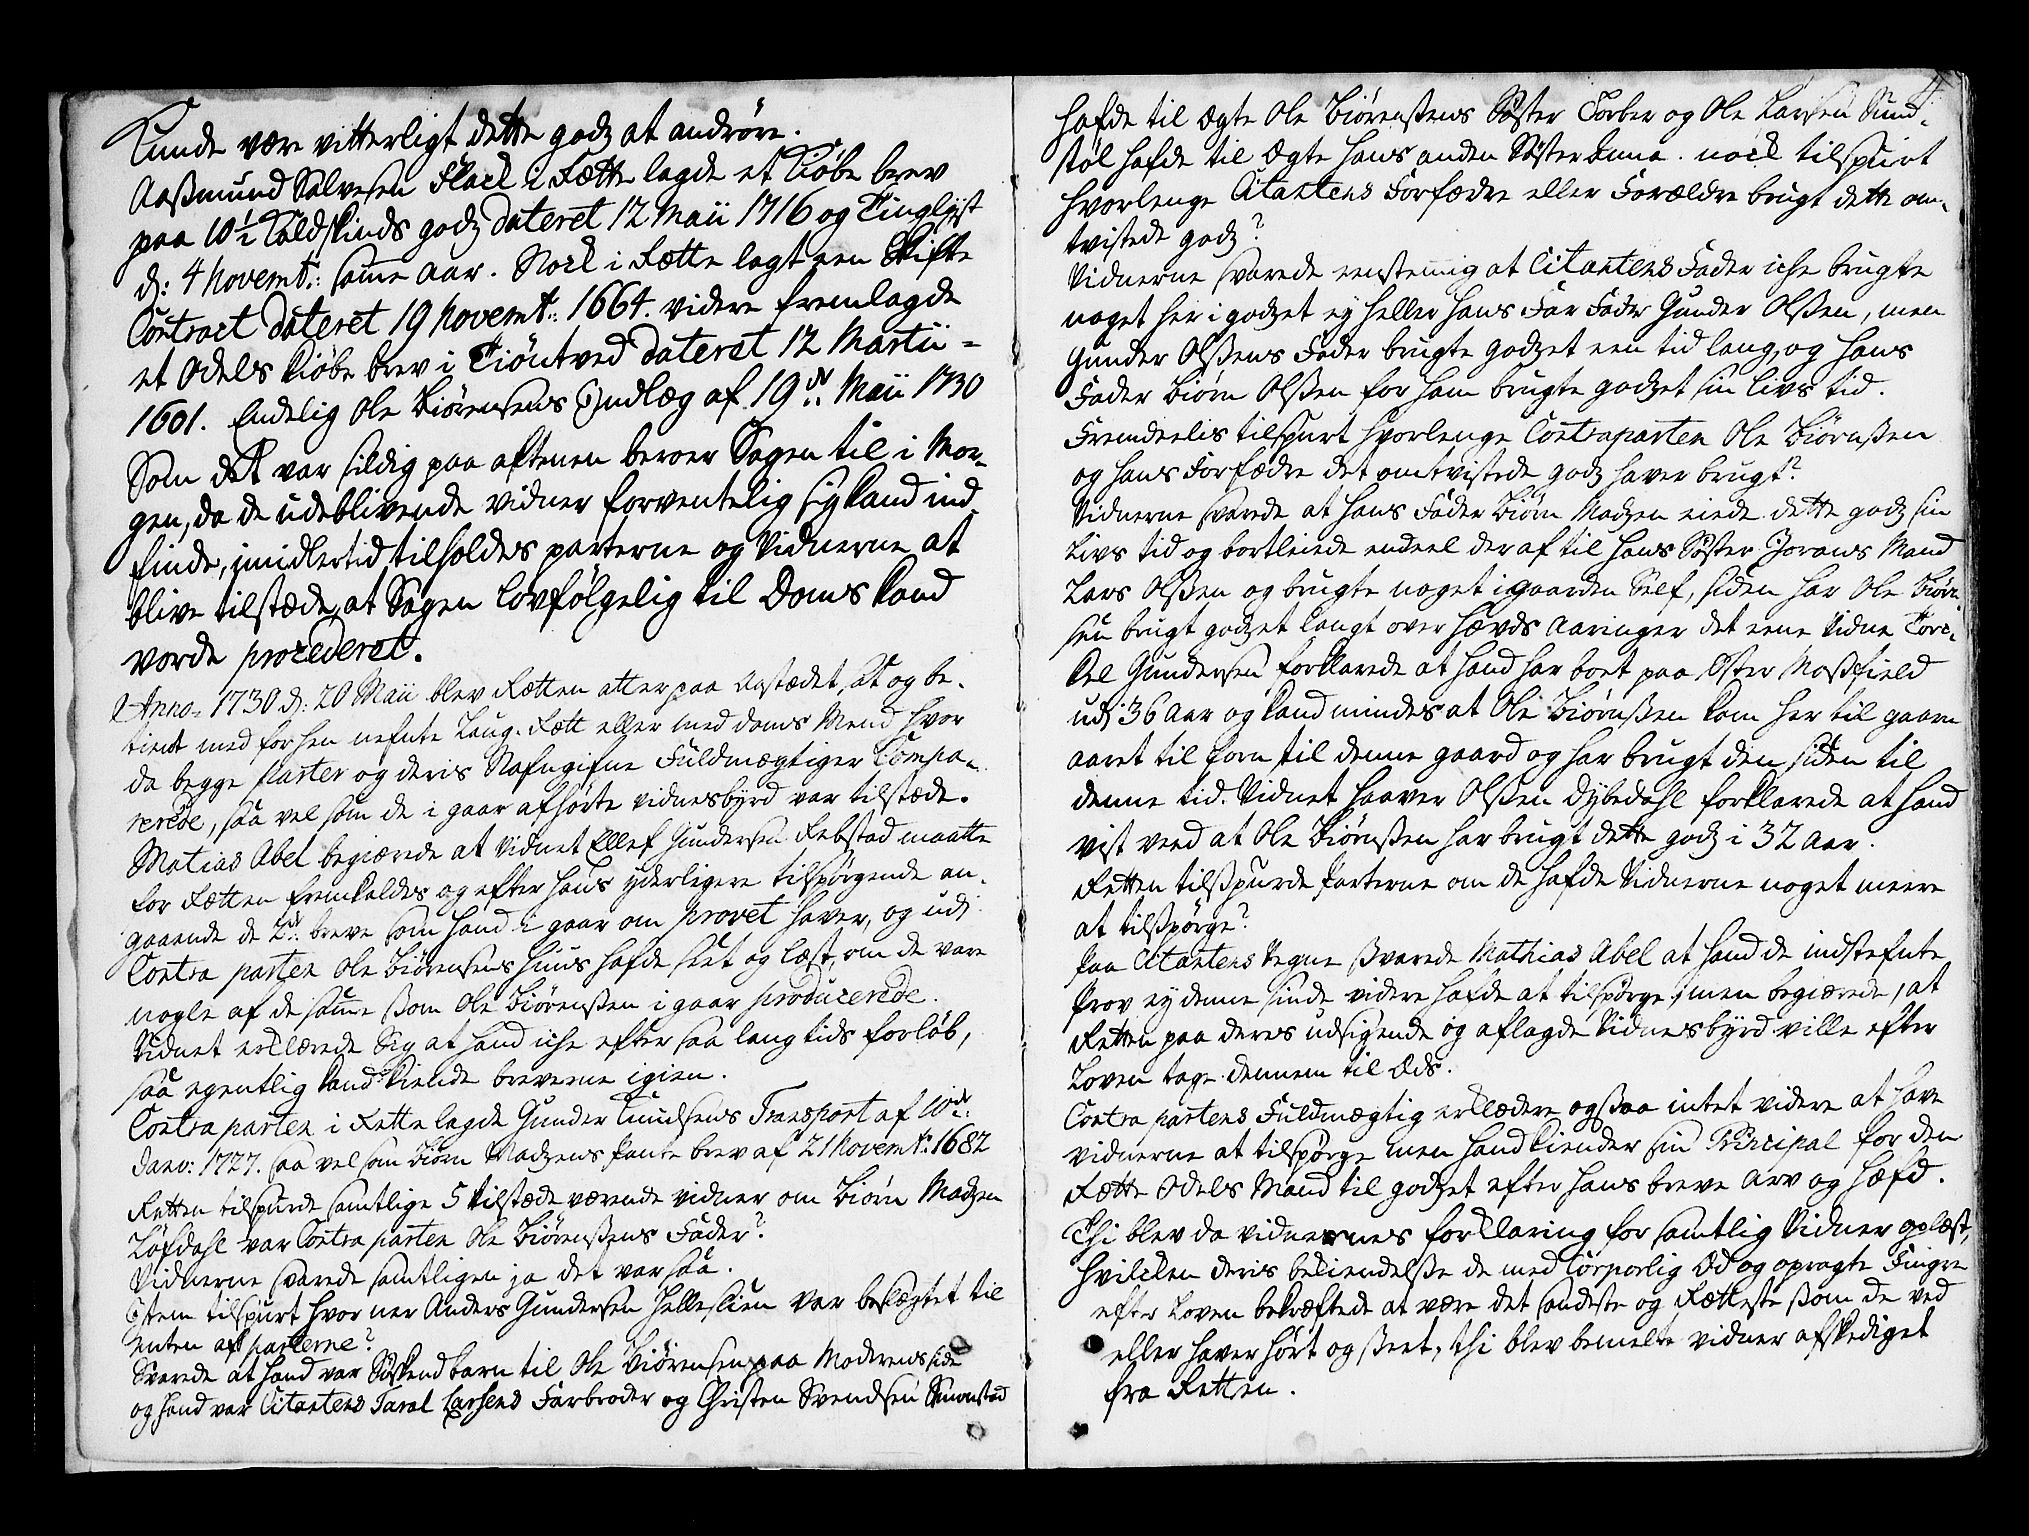 Kunde være vitterligt dette godz at andrøre.
Aaßmund Salvesen Flack i Rætte lagde et Kiøbe brev
paa 10½ Kaldskinds godz dateret 12 Maii 1716 og Tinglyst
d: 4 Novemb: samme aar. Nock i Rætte lagt een Skifte
Contract dateret 19 Novemb: 1664. videre fremlagde
et Odels Kiøbe brev i Tiøntved dateret 12 Martii
1601. Endelig Ole Biørensens Indlæg af 19de Maii 1730
Som det var sildig paa aftenen beroer Sagen til i Mor-
gen, da de udeblivende vidner forventelig sig kand ind-
finde, imidlertid tilholdes parterne og Vidnerne at
blive tilstæde, at Sagen lovfølgelig til Doms kand
vorde procederet.
Anno 1730 d: 20 Maii blev Rætten atter paa Aastædet, sat og be-
tient med forhen nefnte Laug-Rætt eller meddoms Mend hvor
da begge parter og deris Nafngifne Fuldmægtiger Compa-
rerede, saa vel som de i gaar afhørte vidnesbyrd var tilstæde.
Matias Abel begiærede at vidnet Ellef Gundersen Rebstad maatte
for Rætten fremkaldes og efter hans yderligere tilspørgende an-
gaaende de 2de breve som hand i gaar om provet haver, og udj
Contra parten Ole Biørensens huus hafde seet og læst, om de vare
nogle af de samme ßom Ole Biørenßen i gaar producerede.
Vidnet erklærede Sig at hand iche efter saa lang tids forløb,
saa egentlig kand kiende breverne igien.
Contra parten i Rette lagde Gunder Knudsens Transport af 10de
Janv: 1727. saa vel som Biørn Madzens Pante brev af 21 Novembr: 1682
Retten tilspurde samtlige 5 tilstæde værende vidner om Biørn Madzen
Løfdahl var Contra parten Ole Biørenßens Fader?
Vidnerne svarede samtligen ja det var saa.
Item tilspurt hvor ner Anders Gundersen Helleslien var beslægtet til
enten af parterne?
Svarede at hand var Søskendbarn til Ole Biørensen paa Moderens side
og hand var Citantens Taral Larsens Farbroder og Christen Svendsen Simonstad
4.
hafde til Egte Ole Biørenßens Søster Torber og Ole Larsen Sund-
støl hafde til Egte hans anden Søster Anna. nock tilspurt
hvorlenge Citantens Forfædre eller Forældre brugt dette om-
tvistede godz?
Vidnerne svarede eenstemig at Citantens Fader iche brugte
noget her i godzet ey heller hans Far Fader Gunder Olßen, men
Gunder Olßens Fader brugte godzet een tid lang, og hans
Fader Biørn Olßen for ham brugte godzet sin livs tid.
Fremdeelis tilspurt hvorlenge Contraparten Ole Biørnßen
og hans Forfædre det omtvistede godz haver brugt?
Vidnerne svarede at hans Fader Biørn Madzen eiede dette godz sin
Livs tid og bortleiede endeel deraf til hans Søster Jorans Mand
Lars Olßen og brugte noget i gaarden Self, siden har Ole Biørn-
sen brugt godzet langt over hævds Aaringer det eene Vidne Torc-
kel Gundersen forklarede at hand har boet paa Øster Moßfield
udj 36 Aar og kand mindes at Ole Biørnßen kom her til gaarn
aaret til forn til denne gaard og har brugt den siden til
denne tid. Vidnet haaver Olßen Dybedahl forklarede at hand
vist veed at Ole Biørnßen har brugt dette godz i 32 Aar.
Retten tilßpurde parterne om de hafde Vidnerne noget meere
at tilßpørge?
Paa Citantens Vegne ßvarede Mathias Abel at hand de indstefnte
Prov ey denne sinde videre hafde at tilspørge, men begiærede, at
Retten paa deres udsigende og aflagde Vidnesbyrd ville efter
Loven tage dennem til Eds.
Contra partens Fuldmægtig erklædere ogßaa intet videre at have
vidnerne at tilspørge men hand kiender sin Principal for den
Rætte Odels Mand til godzet efter hans breve Arv og Hæfd.
Thi blev da vidnernes forklaring for samtlig Vidner oplæst,
hvilcken deris bekiendelße de med Corporlig Ed og opragte Fingre
efter Loven bekræftede at være det sandeste og Rætteste ßom de ved
eller haver hørt og ßeet, thi blev bemelte vidner afskediget
fra Retten.